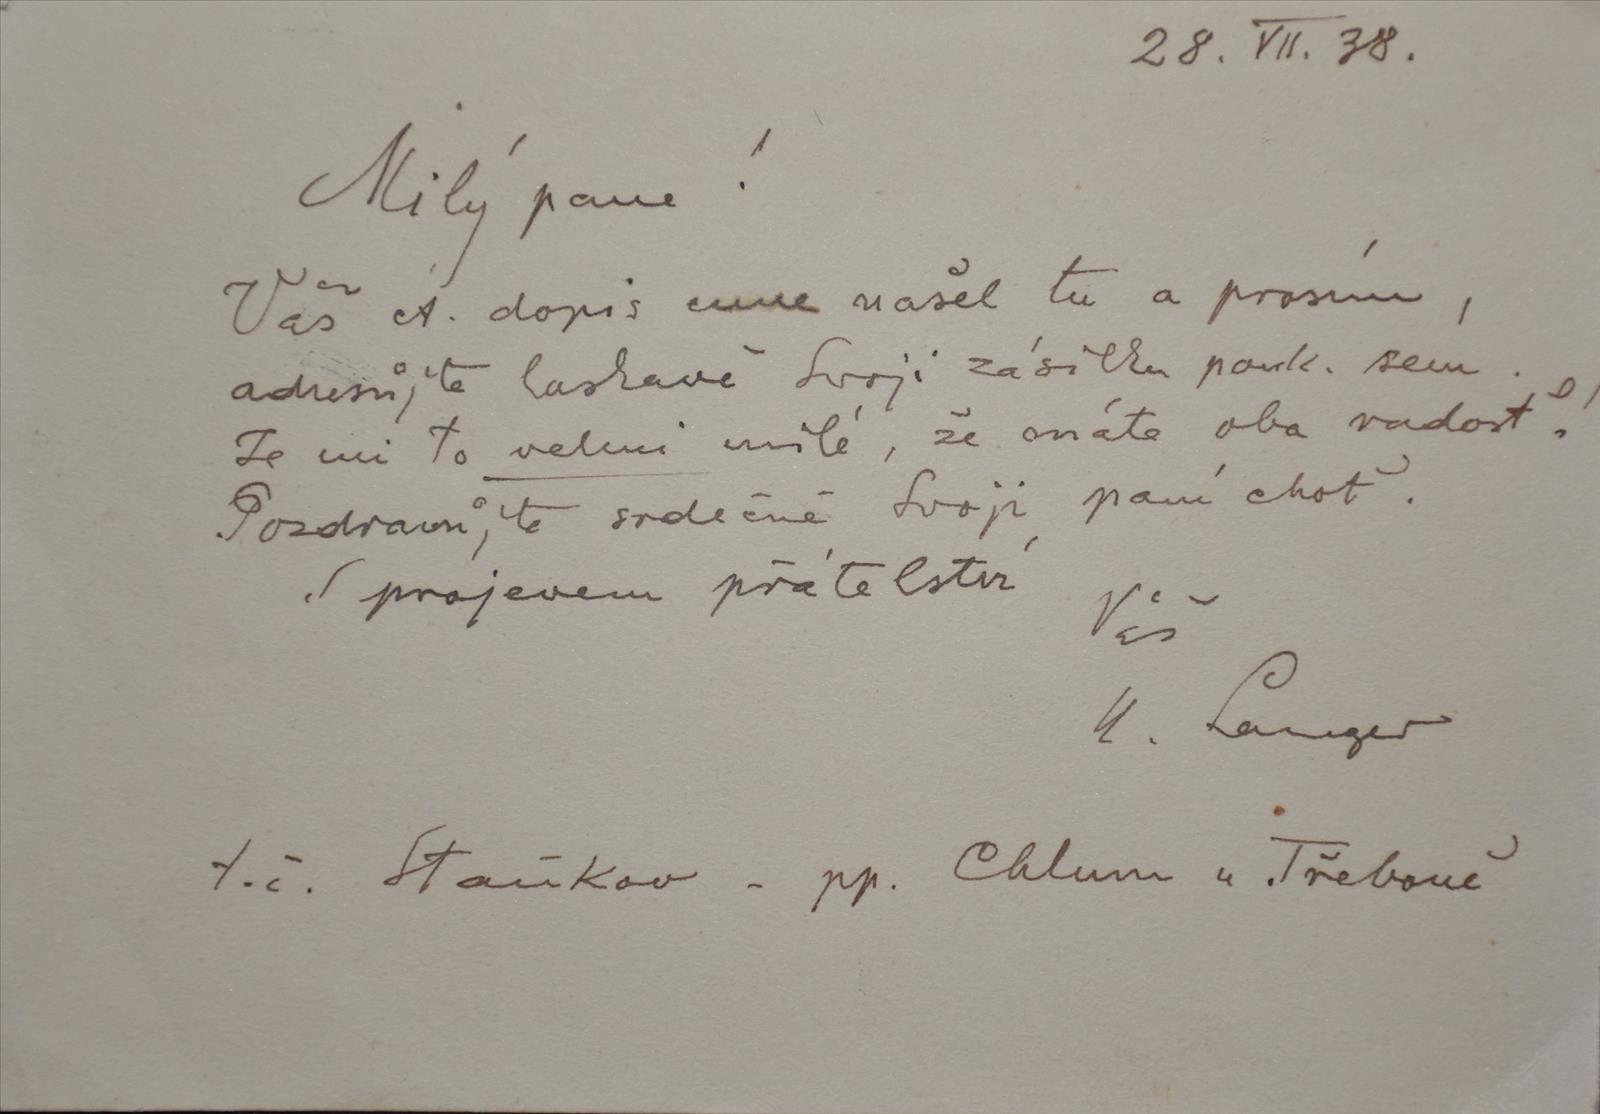 28. VII. 38.
Milý pane!
Váš ct. dopis mne našel tu a prosím,
adresujte laskavě svoji zásilku pouk. sem.
Je mi to velmi milé, že máte oba radost!
Pozdravujte srdečně svoji paní choť.
S projevem přátelství
Váš
Langer
t.č. Staňkov - pp. Chlum u Třeboně